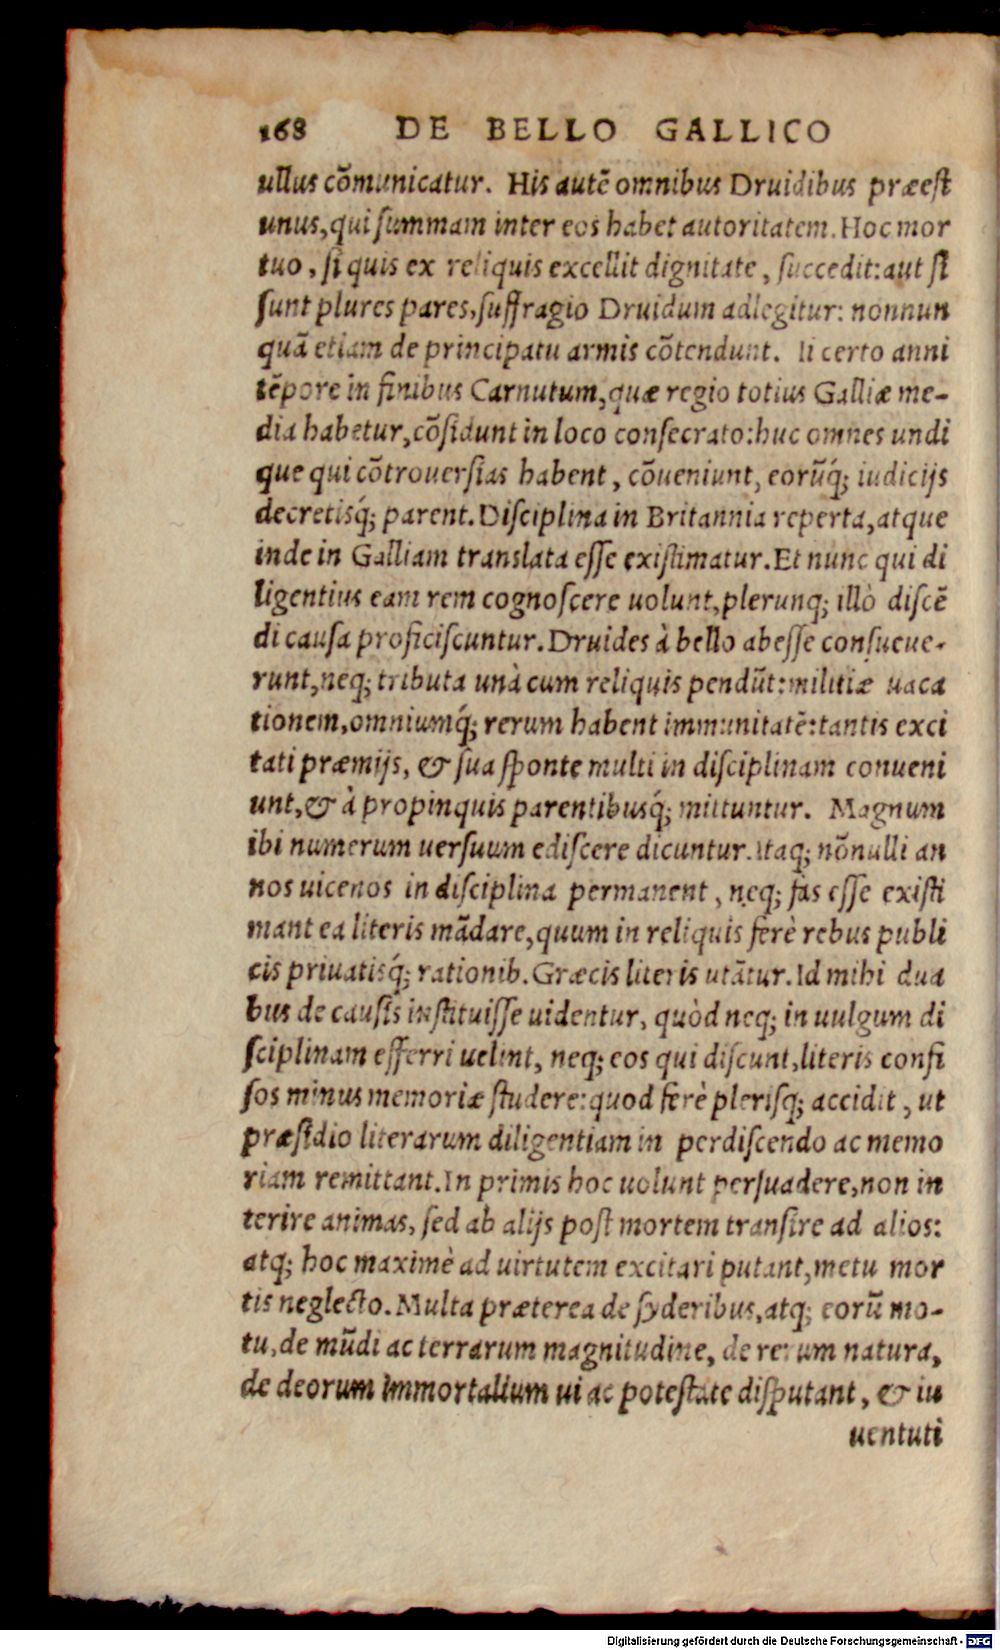 168 DE BELLO GALLICO
ullus cōmunicatur. His autē omnibus Druidibus præest
unus, qui summam inter eos habet autoritatem. Hoc mor
tuo, si quis ex reliquis excellit dignitate, succedit: aut si
sunt plures pares, suffragio Druidum adlegitur: nonnun
quā etiam de principatu armis cōtendunt. Ii certo anni
tēpore in finibus Carnutum, quæ regio totius Galliæ me-
dia habetur, cōsidunt in loco consecrato: huc omnes undi
que qui cōtrouersias habent, cōueniunt, eorūq́; iudicijs
decretisq́; parent. Disciplina in Britannia reperta, atque
inde in Galliam translata esse existimatur. Et nunc qui di
ligentius eam rem cognoscere uolunt, plerunq; illò discē
di causa proficiscuntur. Druides à bello abesse consueue-
runt, neq; tributa unà cum reliquis pendūt: militiæ uaca
tionem, omniumq́; rerum habent immunitatē: tantis exci
tati præmijs, & sua sponte multi in disciplinam conueni
unt, & à propinquis parentibusq́; mittuntur. Magnum
ibi numerum uersuum ediscere dicuntur. Itaq; nōnulli an
nos uicenos in disciplina permanent, neq; fas esse existi
mant ea literis mādare, quum in reliquis ferè rebus publi
cis priuatisq́; rationib. Græcis literis utātur. Id mihi dua
bus de causis instituisse uidentur, quòd neq; in uulgum di
sciplinam efferri uelint, neq; eos qui discunt, literis confi
sos minus memoriæ studere: quod ferè plerisq; accidit, ut
præsidio literarum diligentiam in perdiscendo ac memo
riam remittant. In primis hoc uolunt persuadere, non in
terire animas, sed ab alijs post mortem transire ad alios:
atq; hoc maximè ad uirtutem excitari putant, metu mor
tis neglecto. Multa præterea de syderibus, atq; eorū mo-
tu, de mūdi ac terrarum magnitudine, de rerum natura,
de deorum immortalium ui ac potestate disputant, & iu
uentuti
Digitalisierung gefördert durch die Deutsche Forschungsgemeinschaft - DFG